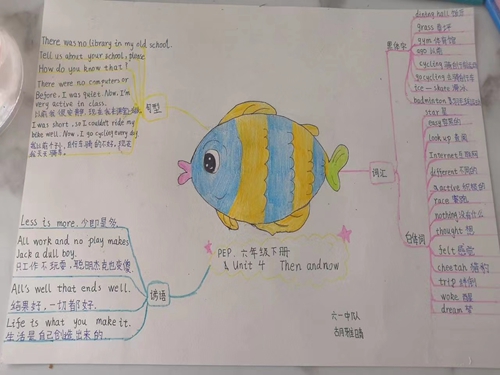 There was no library in my old school.
Tell us about your school, please
How do you know that?
There were no computers or
Before, I was quiet. Now, I'm
very active in class.
I was short, so I couldn't ride my
bike well. Now, I go cycling every day
句型
Less is more. 少即是多
All work and no play makes
Jack a dull boy.
只工作不玩耍,聪明杰克也变傻
All's well that ends well.
结果好,一切都好.
Life is what you make it.
生活是自己创造出来的
谚语
PEP. 六年级下册
Unit 4 Then and now
六一中队
词汇
黑体字
dining hall 饭厅
grass 草坪
gym 体育馆
ago 以前
cycling
go cycling
ice-skate 滑冰
badminton
白体词
star 星
easy
look up 查阅
Internet 互联网
different 不同的
active 积极的
race 赛跑
nothing 没有什么
thought 想
felt 感觉
cheetah 猎豹
trip 绊倒
woke 醒
dream 梦